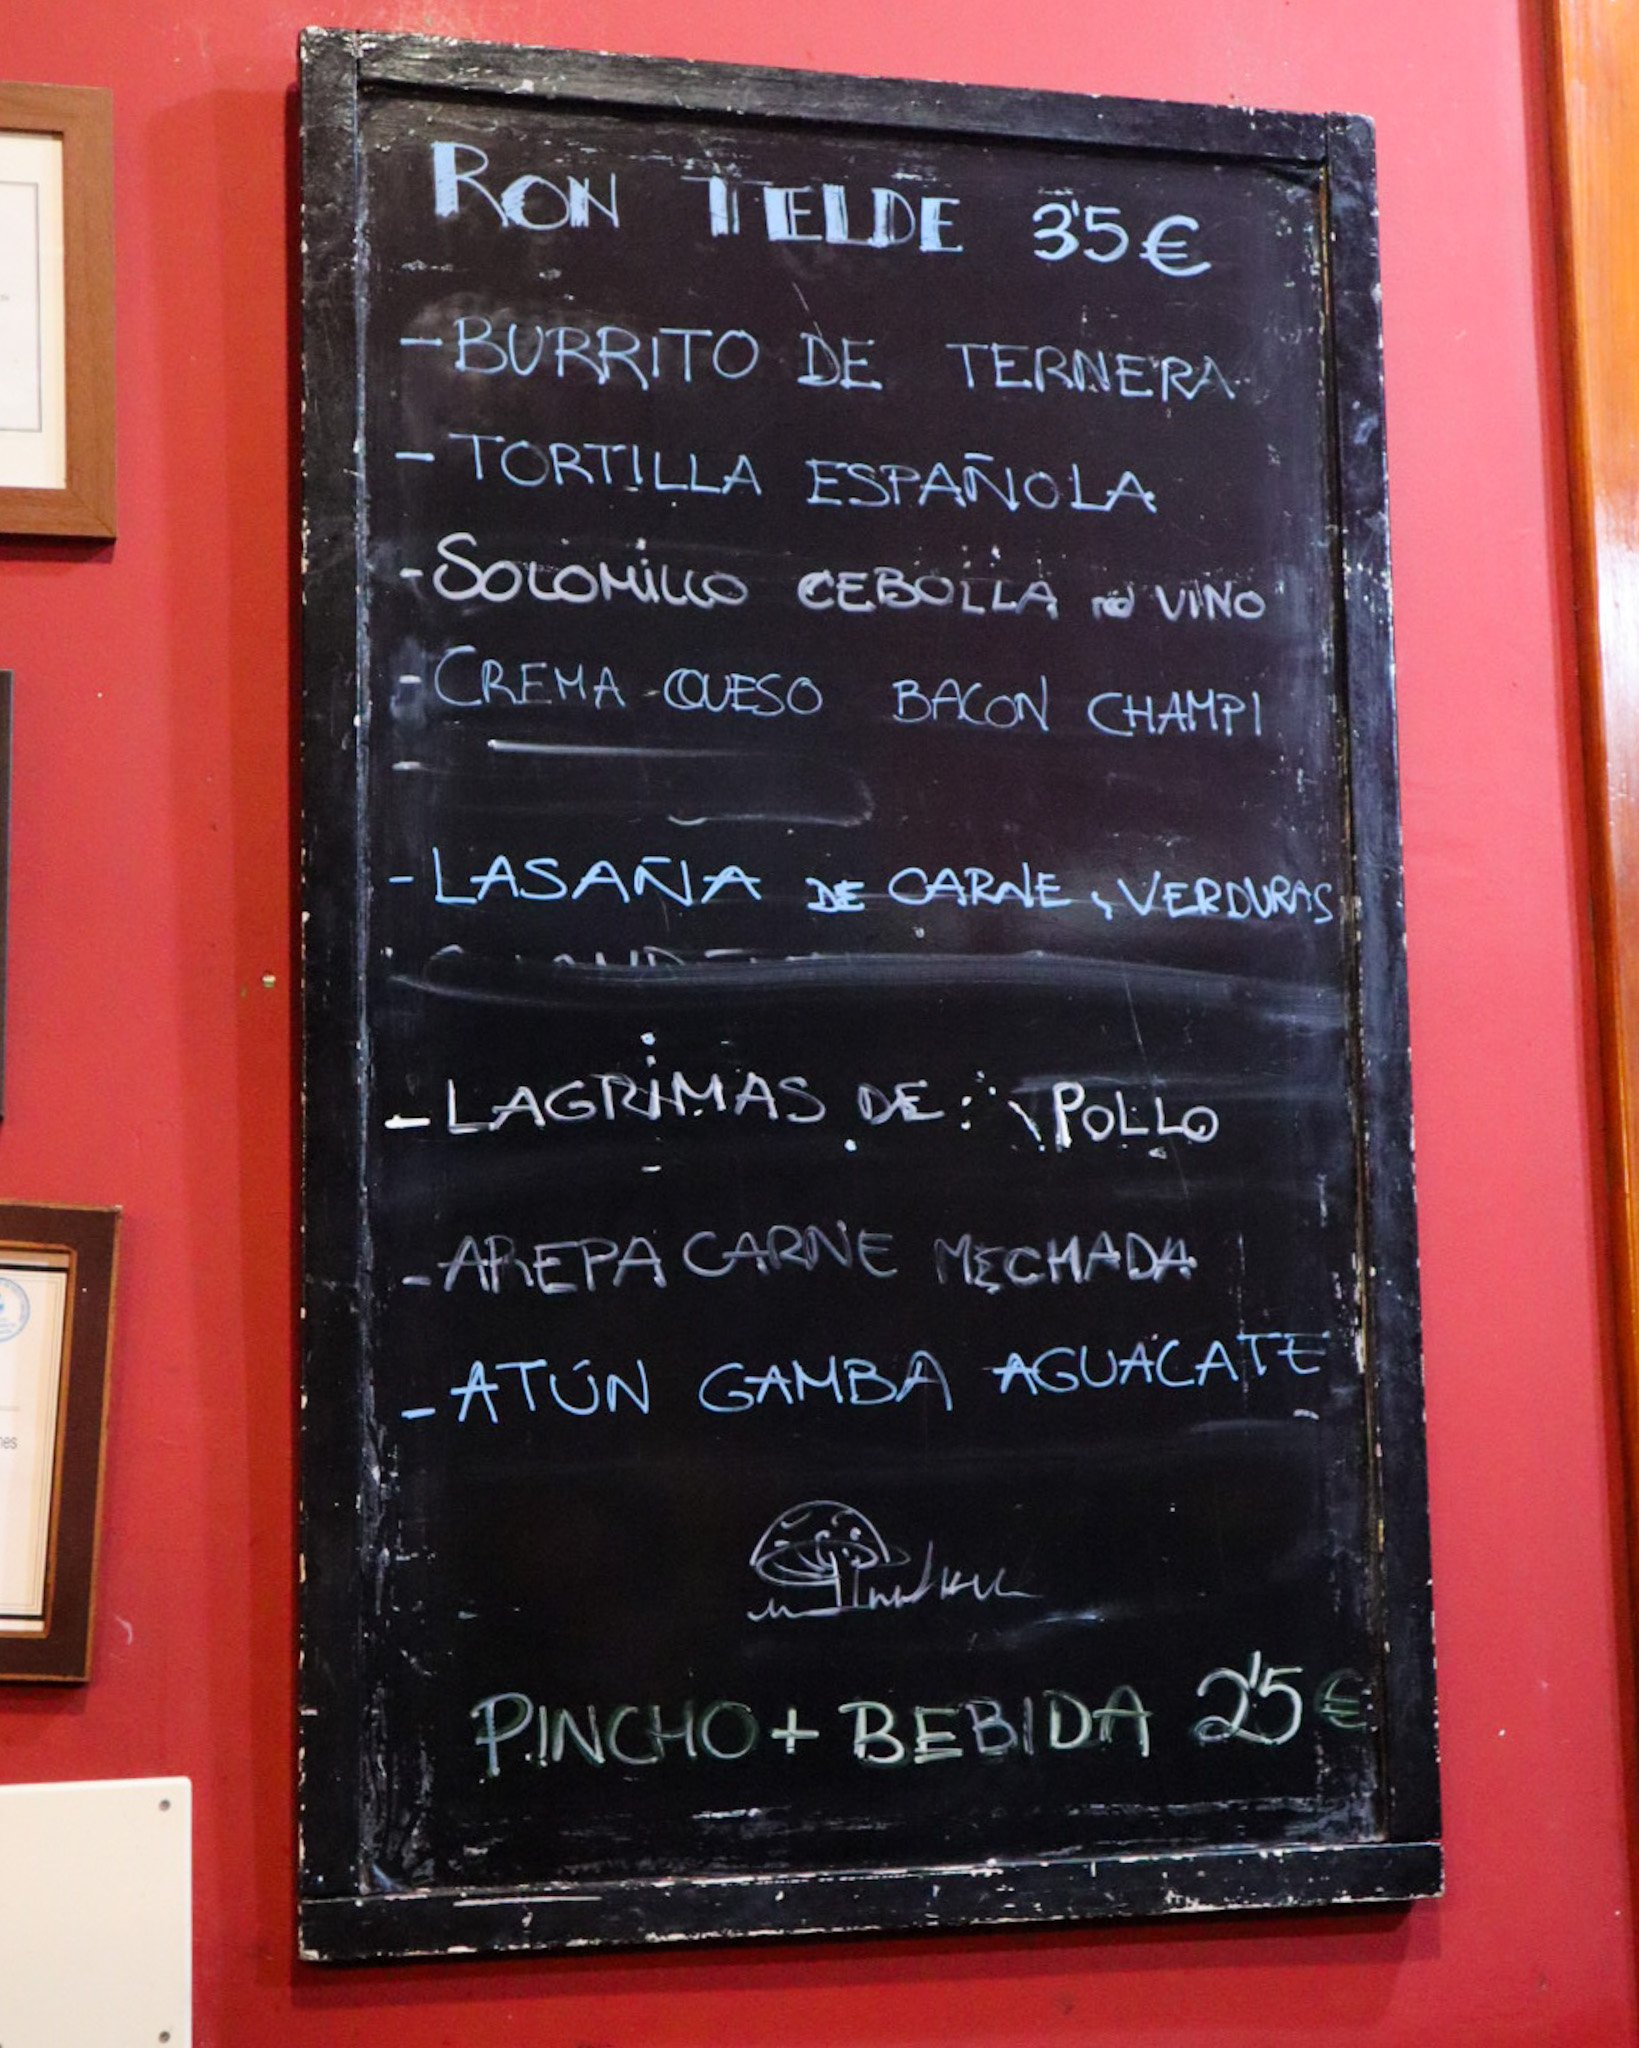 RON TELDE 3'5€
- BURRITO DE TERNERA
- TORTILLA ESPAÑOLA
- SOLOMILLO CEBOLLA VINO
- CREMA QUESO BACON CHAMPI
-
- LASAÑA DE CARNE Y VERDURAS
- LAGRIMAS DE POLLO
- AREPA CARNE MECHADA
- ATÚN GAMBA AGUACATE
PINCHO + BEBIDA 2'5€